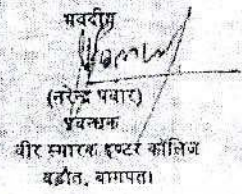 भवदीय
(नरेन्द्र पवार)
प्रबन्धक
वीर स्मारक इण्टर कॉलिज
बड़ौत, बागपत।